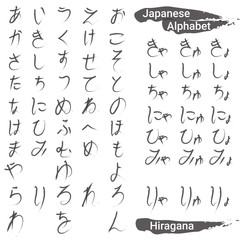 Japanese
Alphabet
あ い う え お
か き く け こ
さ し す せ そ
た ち つ て と
な に ぬ ね の
は ひ ふ へ ほ
ま み む め も
や ゆ よ
ら り る れ ろ
わ を ん
きゃ きゅ きょ
しゃ しゅ しょ
ちゃ ちゅ ちょ
にゃ にゅ にょ
ひゃ ひゅ ひょ
みゃ みゅ みょ
りゃ りゅ りょ
Hiragana